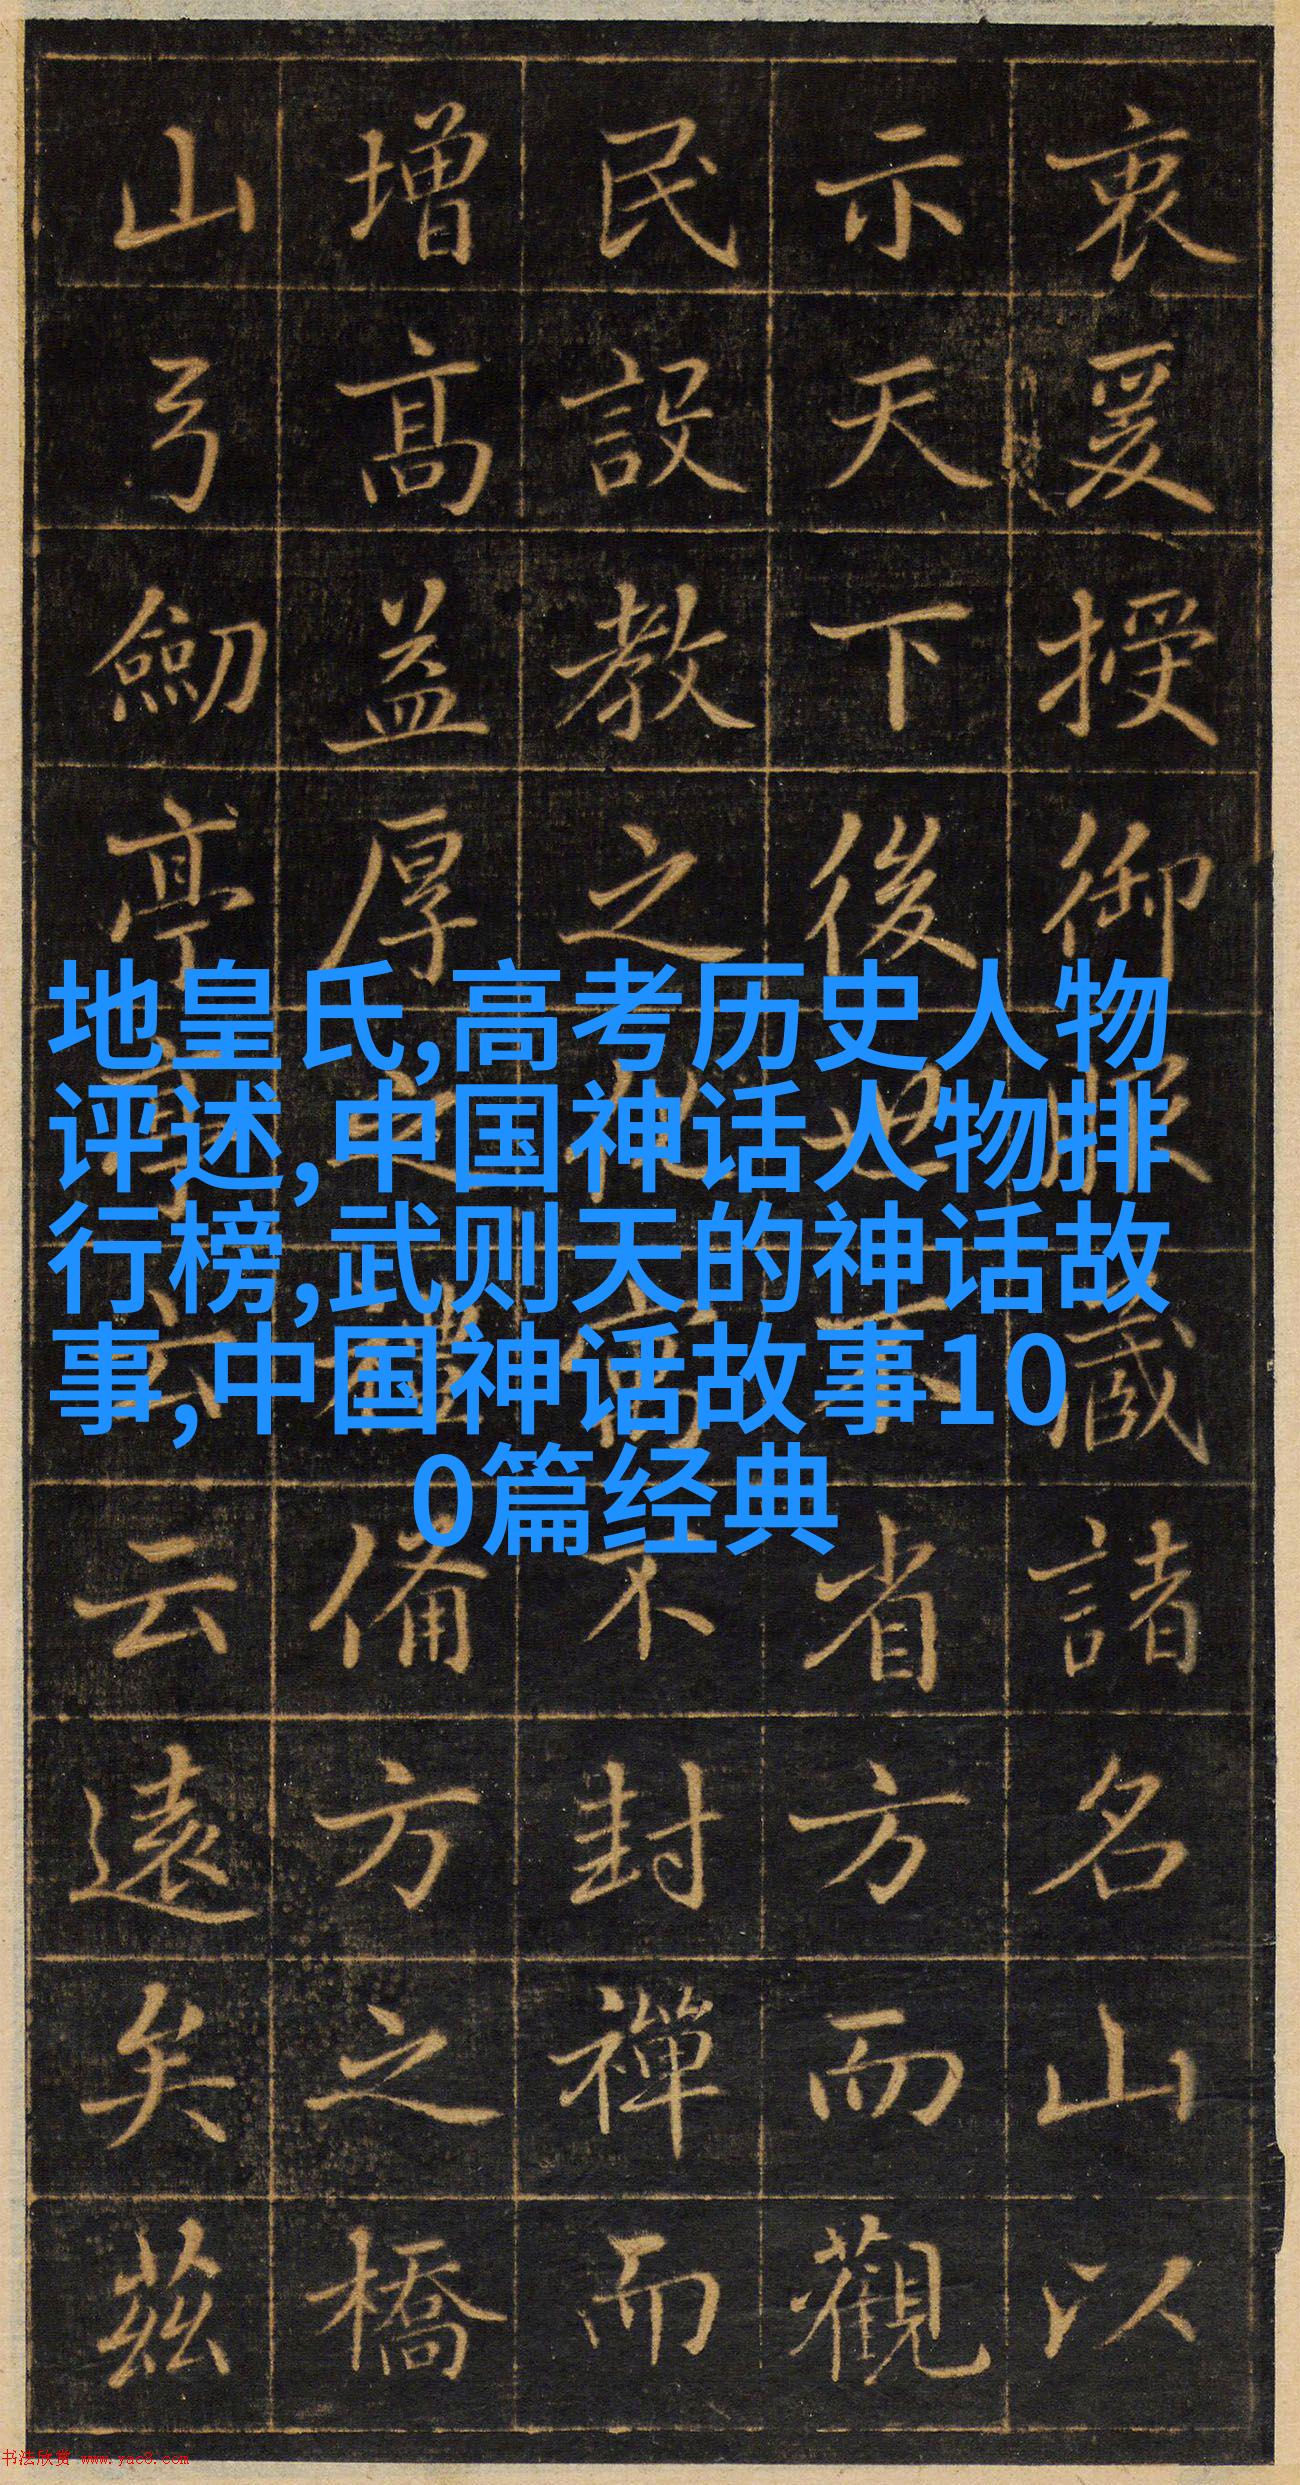 衷爰授御服藏諸名山以
示天下後世省方而觀
民設教之不封禪而
增高益厚之禮備方之橋
山弓劒亭亭云云遠矣茲
地皇氏,高考历史人物
评述,中国神话人物排
行榜,武则天的神话故
事,中国神话故事10
0篇经典
书法欣赏 www.yac8.com